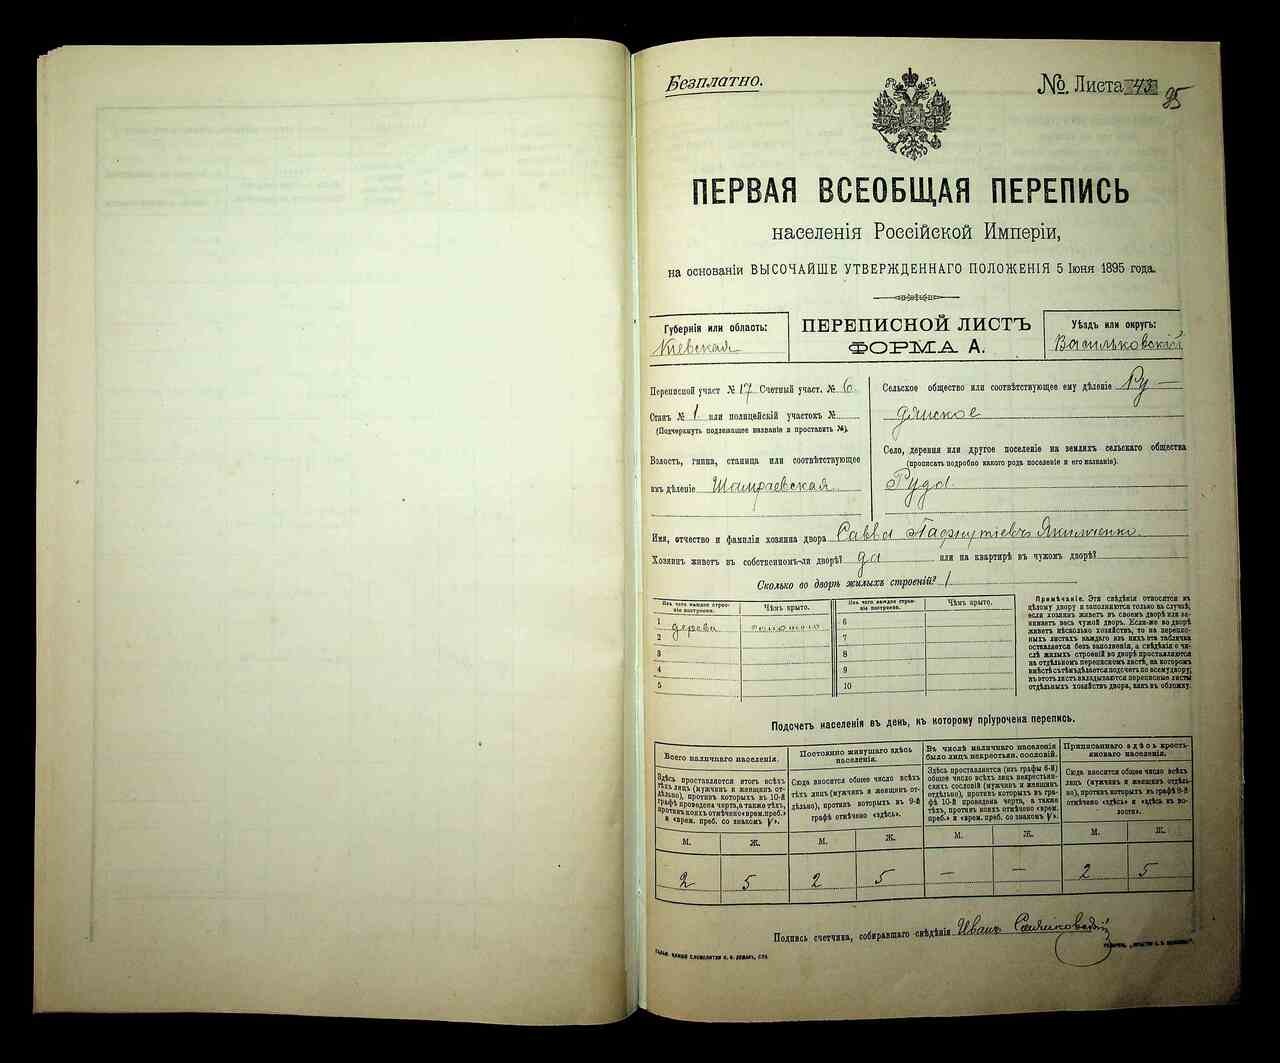 Безплатно.
№ Листа 43
95
ПЕРВАЯ ВСЕОБЩАЯ ПЕРЕПИСЬ
населенія Россійской Имперіи,
на основаніи ВЫСОЧАЙШЕ УТВЕРЖДЕННАГО ПОЛОЖЕНІЯ 5 Іюня 1895 года.
Губернія или область:
Кіевская
ПЕРЕПИСНОЙ ЛИСТЪ
ФОРМА А.
Уѣздъ или округъ:
Васильковскій
Переписной участ. № 17 Счетный участ. № 6
Станъ № 1 или полицейскій участокъ №
(Подчеркнуть подлежащее названіе и проставить №).
Волость, гмина, станица или соотвѣтствующее
имъ дѣленіе Шамраевская
Сельское общество или соотвѣтствующее ему дѣленіе Ру-
дянское
Село, деревня или другое поселеніе на земляхъ сельскаго общества
(прописать подробно какого рода поселеніе и его названіе).
Руда
Имя, отчество и фамилія хозяина двора Савва Пафнутіевъ Якимченко
Хозяинъ живетъ въ собственномъ-ли дворѣ? да или на квартирѣ въ чужомъ дворѣ?
Сколько во дворѣ жилыхъ строеній? 1
Изъ чего каждое строе-
ніе построено.
Чѣмъ крыто.
Изъ чего каждое строе-
ніе построено.
Чѣмъ крыто.
1 дерева соломою 6
2 7
3 8
4 9
5 10
Примѣчаніе. Эти свѣдѣнія относятся къ
цѣлому двору и заполняются только въ случаѣ,
если хозяинъ живетъ въ своемъ дворѣ или за-
нимаетъ весь чужой дворъ. Если-же во дворѣ
живетъ нѣсколько хозяйствъ, то на перепис-
ныхъ листахъ каждаго изъ нихъ эта табличка
оставляется безъ заполненія, а свѣдѣнія о чи-
слѣ жилыхъ строеній во дворѣ проставляются
на отдѣльномъ переписномъ листѣ, на которомъ
вмѣстѣ съ тѣмъ дѣлается подсчетъ по всему двору;
въ этотъ листъ вкладываются переписные листы
отдѣльныхъ хозяйствъ двора, какъ въ обложку.
Подсчетъ населенія въ день, къ которому пріурочена перепись.
Всего наличнаго населенія.
Здѣсь проставляется итогъ всѣхъ
тѣхъ лицъ (мужчинъ и женщинъ от-
дѣльно), противъ которыхъ въ 10-й
графѣ проведена черта, а также тѣхъ,
противъ коихъ отмѣчено «врем. преб.»
и «врем. преб. со знакомъ V».
Постоянно живущаго здѣсь
населенія.
Сюда вносится общее число всѣхъ
тѣхъ лицъ (мужчинъ и женщинъ от-
дѣльно), противъ которыхъ въ 9-й
графѣ отмѣчено «здѣсь».
Въ числѣ наличнаго населенія
было лицъ некрестьян. сословій.
Здѣсь проставляется (изъ графы 6-й)
общее число всѣхъ лицъ некрестьян-
скихъ сословій (мужчинъ и женщинъ
отдѣльно), противъ которыхъ въ гра-
фѣ 10-й проведена черта, а также
тѣхъ, противъ коихъ отмѣчено «врем.
преб.» и «врем. преб. со знакомъ V».
Приписаннаго здѣсь кресть-
янскаго населенія.
Сюда вносится общее число всѣхъ
тѣхъ лицъ (мужчинъ и женщинъ от-
дѣльно), противъ которыхъ въ графѣ 8-й
отмѣчено «здѣсь» и «здѣсь въ во-
лости».
М. Ж. М. Ж. М. Ж. М. Ж.
2 5 2 5 — — 2 5
Подпись счетчика, собиравшаго свѣдѣнія Иванъ